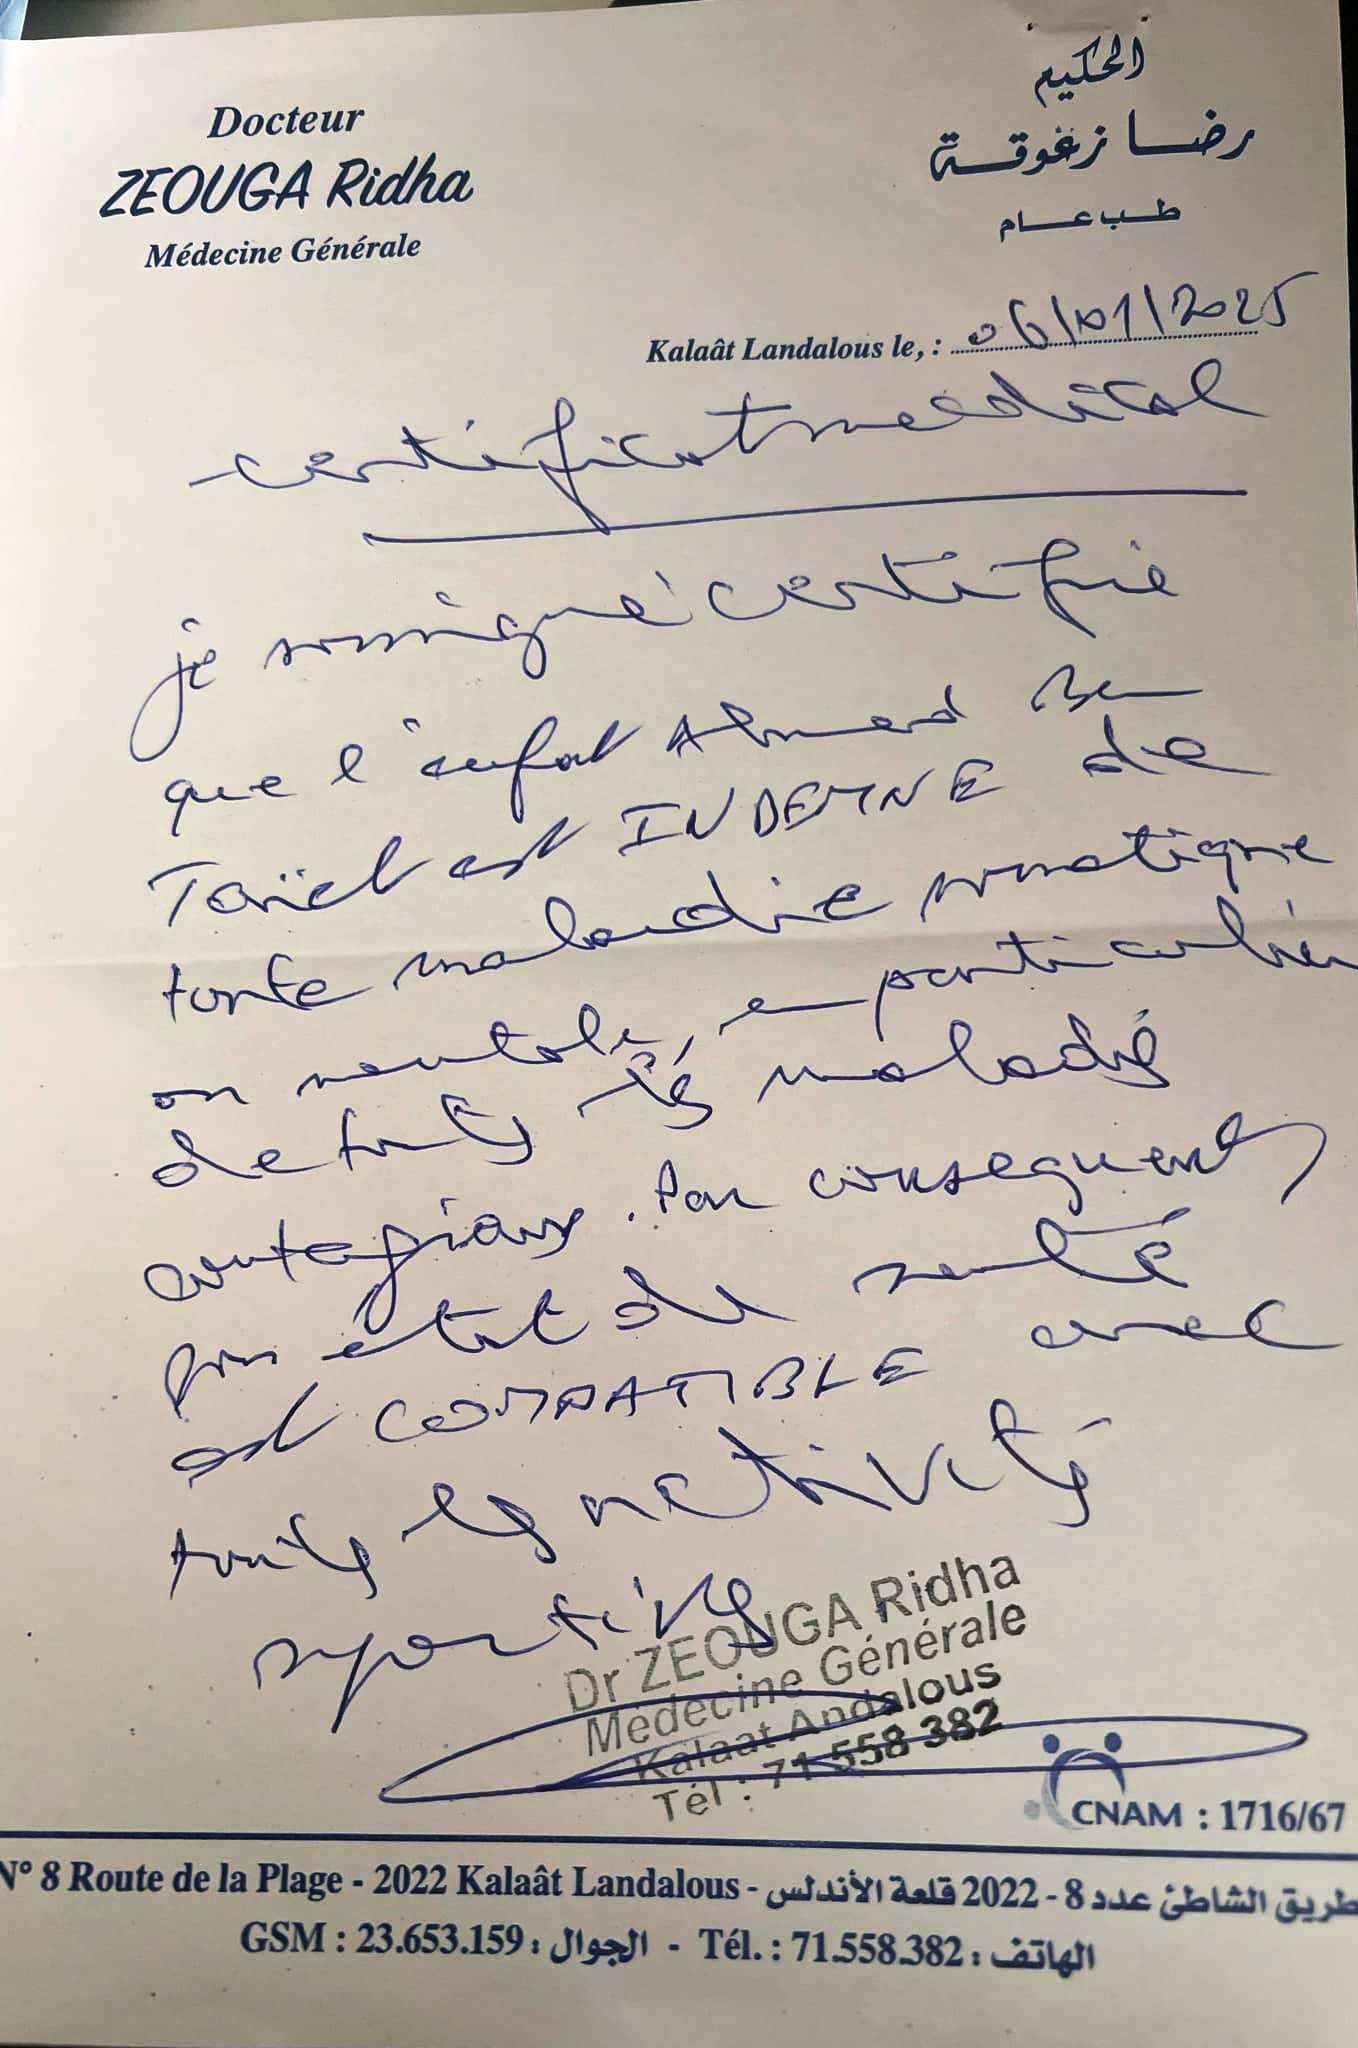 Docteur
ZEOUGA Ridha
Médecine Générale
الحكيم
رضا زغوقة
طب عام
Kalaât Landalous le, : 06/01/2025
certificat médical
je soussigné certifie
que l'enfat Ahmed Ben
Taïeb est INDEMNE de
toute maladie somatique
ou mentale, en particulier
de touts les maladies
contagieux. Par consequent,
son état de santé
est COMPATIBLE avec
touts les activités
sportives
Dr ZEOUGA Ridha
Médecine Générale
Kalaat Andalous
Tél : 71 558 382
CNAM : 1716/67
N° 8 Route de la Plage - 2022 Kalaât Landalous - طريق الشاطئ عدد 8 - 2022 قلعة الأندلس
GSM : 23.653.159 : الجوال - Tél. : 71.558.382 : الهاتف